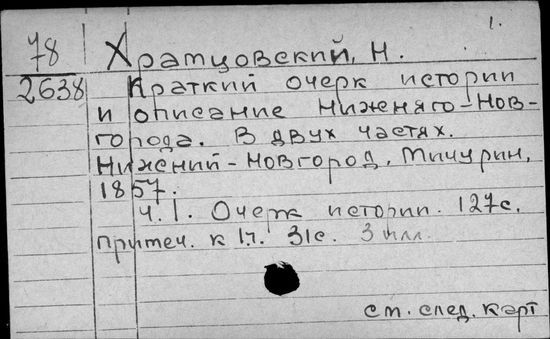 1.
78 Храмцовский, Н.
2638 Краткий очерк истории
и описание Нижняго-Нов-
города. В двух частях.
Нижний-Новгород, Мичурин,
1857.
Ч. 1. Очерк истории. 127с.
примеч. к 1ч. 31с. 3 илл.
см. след. карт